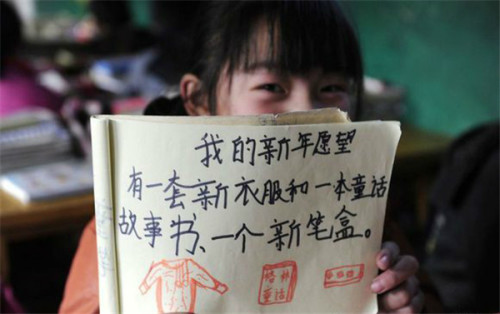 我的新年愿望
有一套新衣服和一本童话
故事书、一个新笔盒。
童话